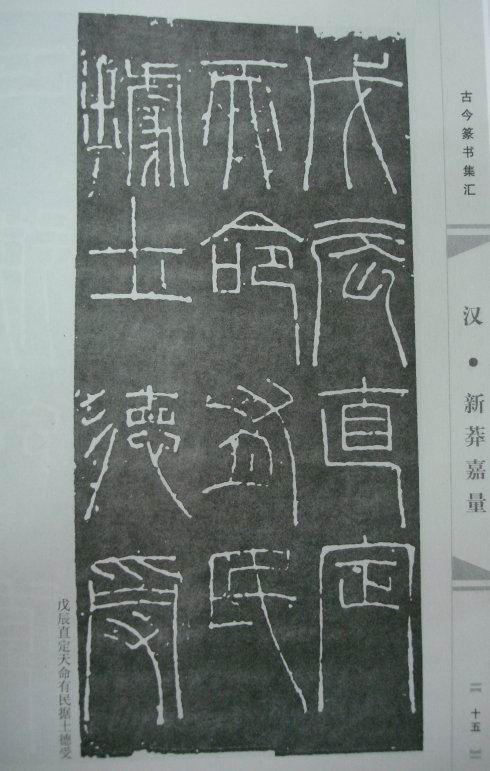 古今篆书集汇
汉●新莽嘉量
十五
戊辰直定
天命有民
據土德受
戊辰直定天命有民据土德受